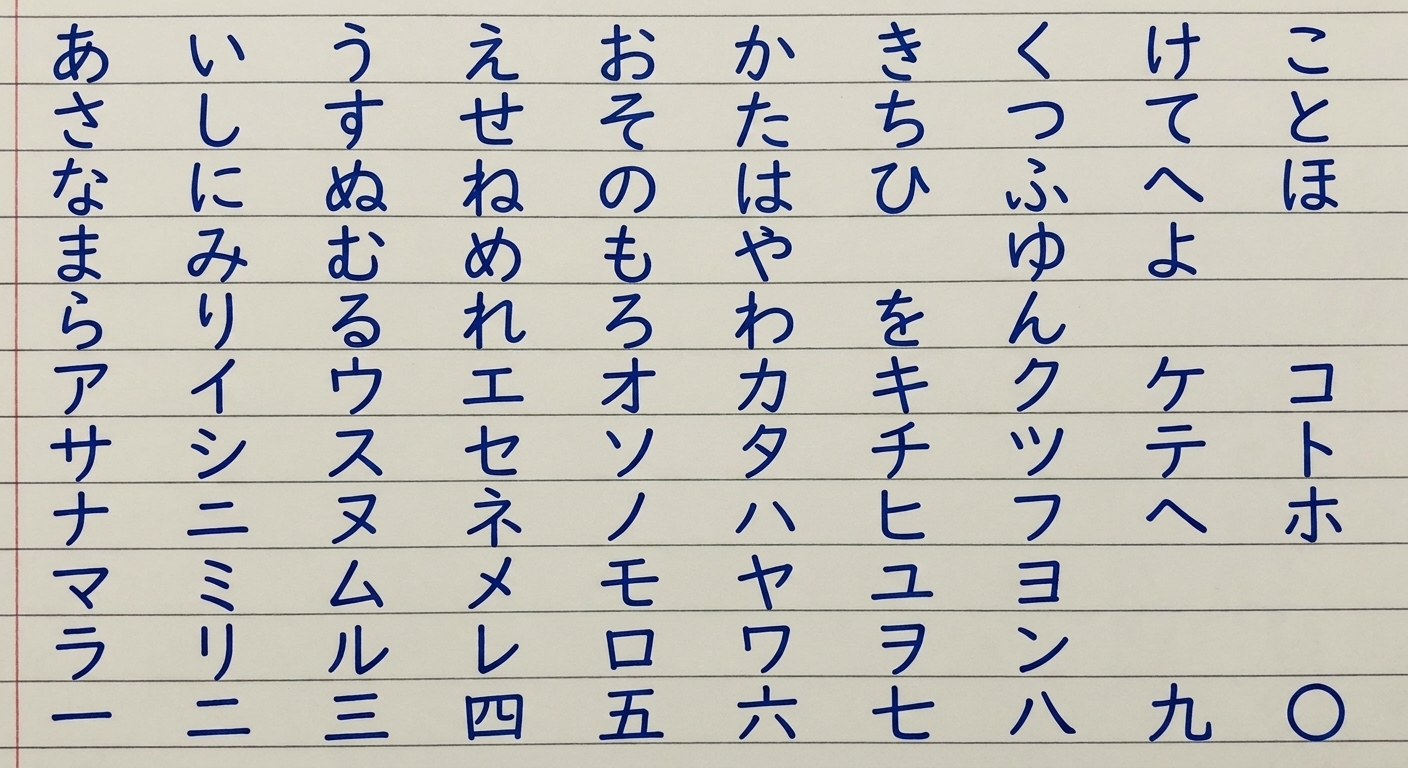 あ い う え お か き く け こ
さ し す せ そ た ち つ て と
な に ぬ ね の は ひ ふ へ ほ
ま み む め も や ゆ よ
ら り る れ ろ わ を ん
ア イ ウ エ オ カ キ ク ケ コ
サ シ ス セ ソ タ チ ツ テ ト
ナ ニ ヌ ネ ノ ハ ヒ フ ヘ ホ
マ ミ ム メ モ ヤ ユ ヨ
ラ リ ル レ ロ ワ ヲ ン
一 二 三 四 五 六 七 八 九 〇